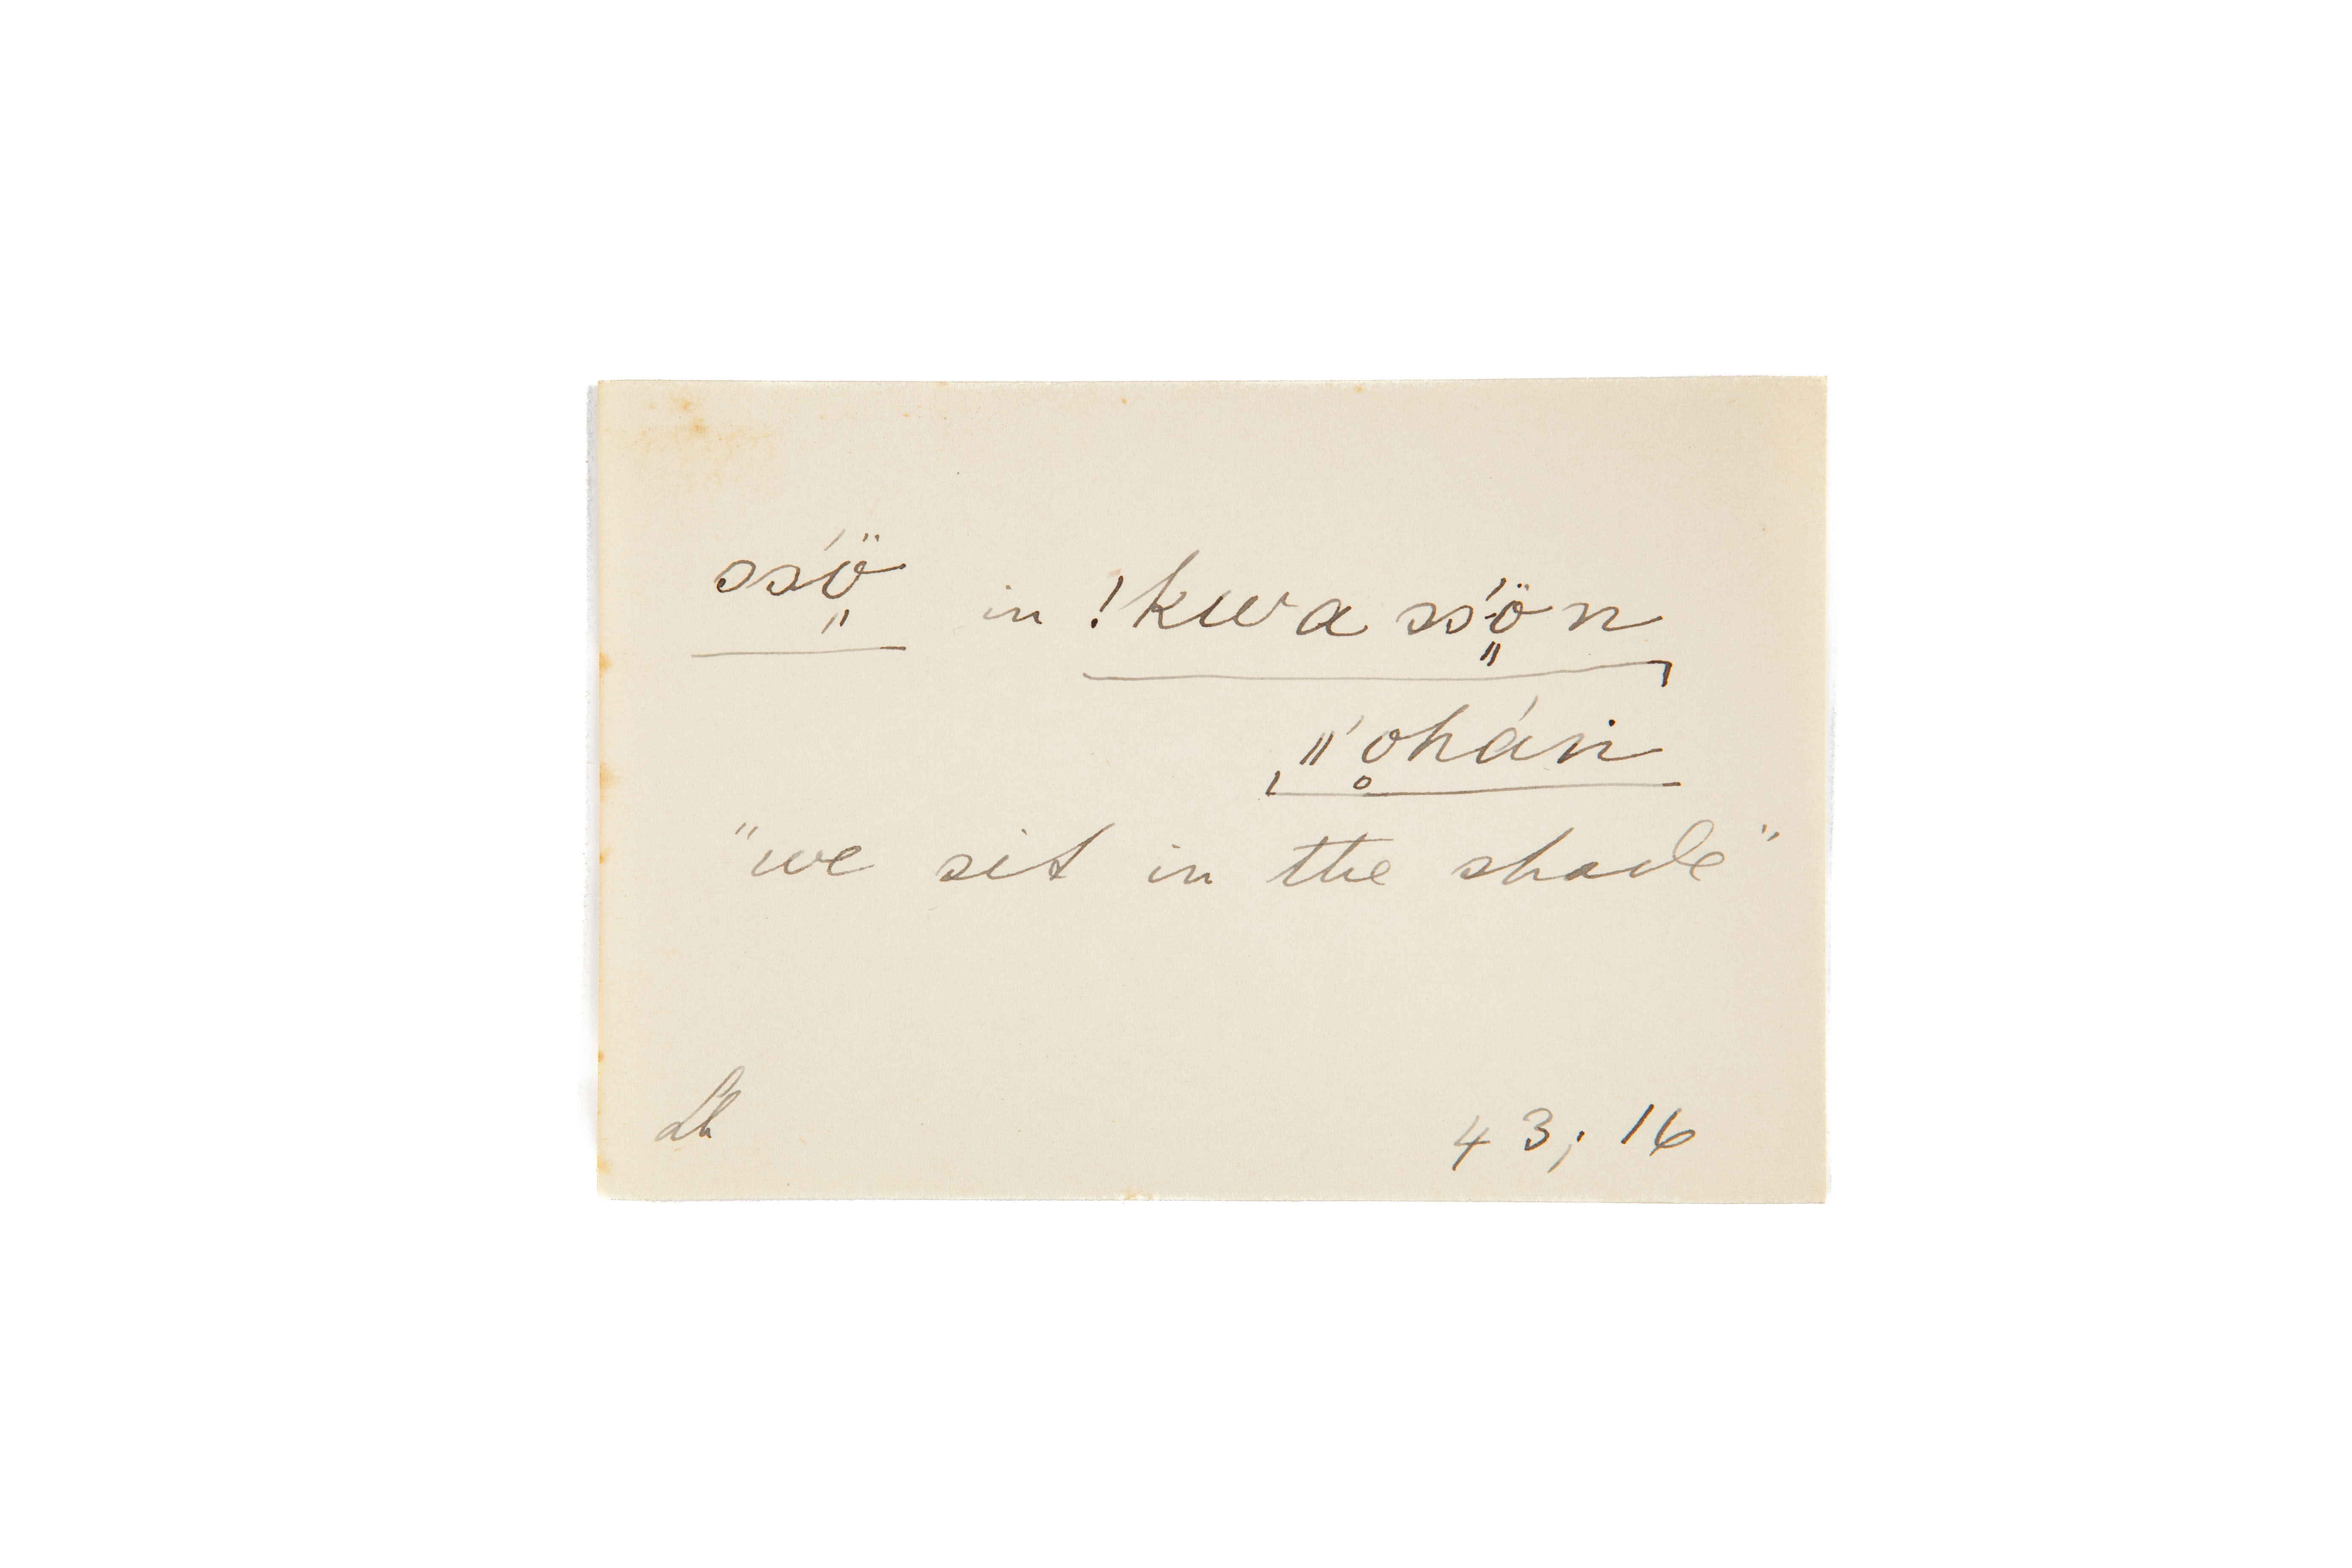 ss'ö̤ in !kwa ss'ö̤n
ǁ'o̥hán
"we sit in the shade"
Lh 43; 16